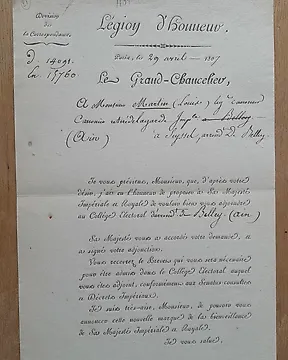 Division
de
la Correspondance.
Légion d'honneur.
D 14091.
Ln 15760
Paris, le 29 avril 1807
Le Grand-Chancelier,
A Monsieur Martin (Louis)
Canonnier retiré
(Ain) à Seyssel, arrond. de Belley
Je vous préviens, Monsieur, que, d'après votre
désir, j'ai eu l'honneur de proposer à Sa Majesté
Impériale et Royale de vouloir bien vous adjoindre
au Collège Electoral d'arrond.t de Belley (ain)
Sa Majesté vous a accordé votre demande, et
a signé votre adjonction.
Vous recevrez le Brevet qui vous sera nécessaire
pour être admis dans le Collège Electoral auquel
vous êtes adjoint, conformément aux Senatus consultes
et Décrets Impériaux.
Je suis très-aise, Monsieur, de pouvoir vous
annoncer cette nouvelle marque de la bienveillance
de Sa Majesté Impériale et Royale.
Je vous salue.